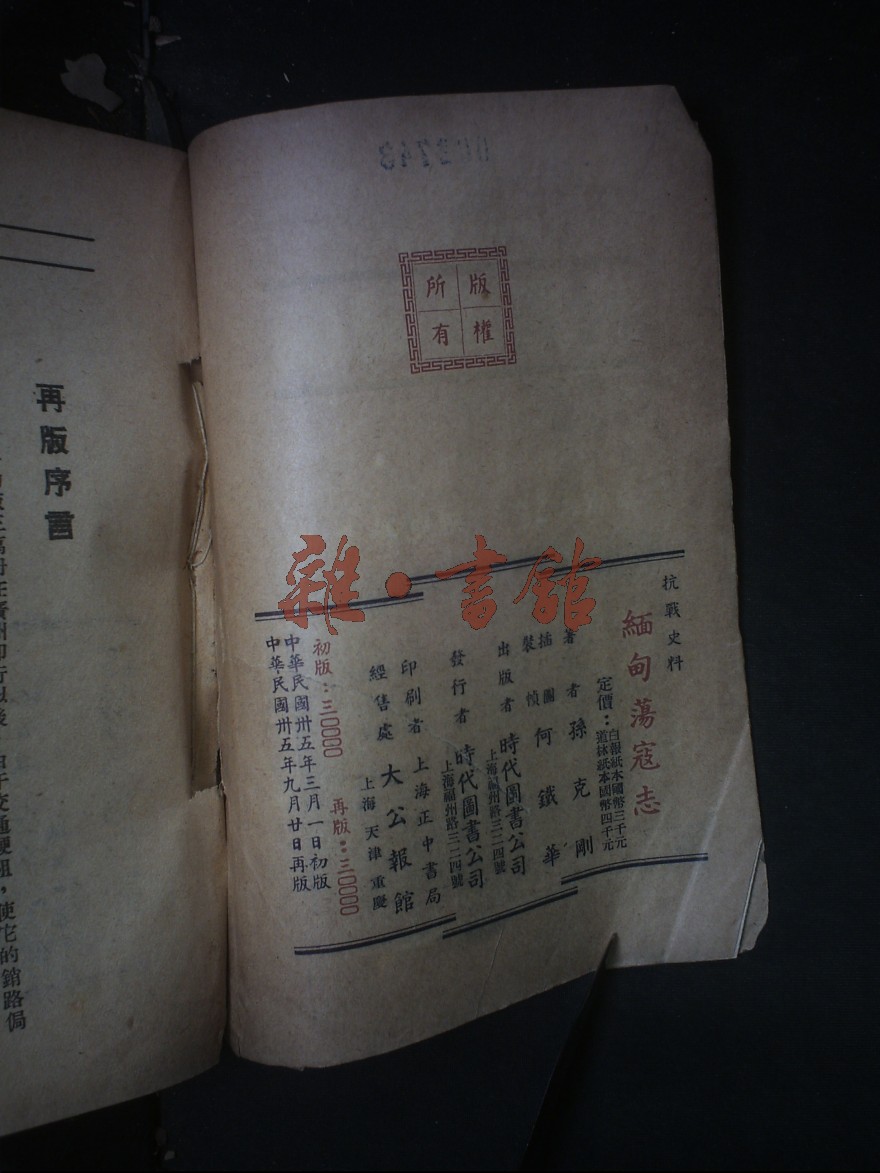 版權
所有
抗戰史料
緬甸蕩寇志
定價：白報紙本國幣三千元
道林紙本國幣四千元
著者 孫克剛
插圖
裝幀 何鐵華
出版者 時代圖書公司
上海福州路三二四號
發行者 時代圖書公司
上海福州路三二四號
印刷者 上海正中書局
經售處 大公報館
上海 天津 重慶
初版：三〇〇〇〇 再版：三〇〇〇〇
中華民國卅五年三月一日初版
中華民國卅五年九月廿日再版
雜·書館
再版序言
使它的銷路侷